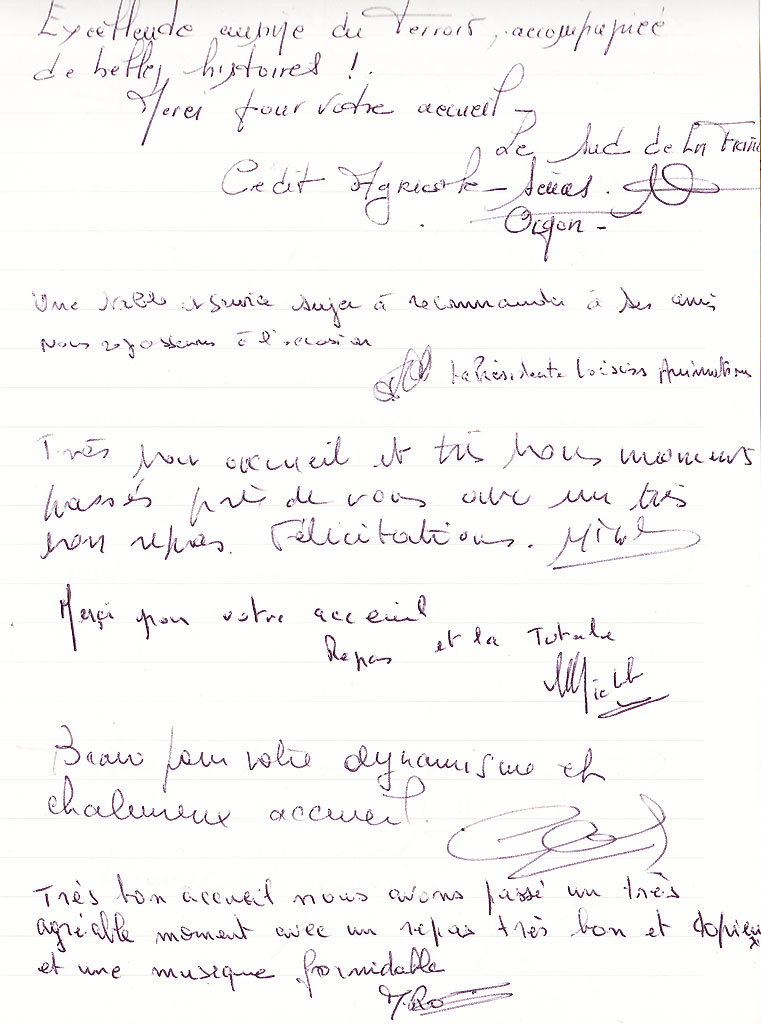 Excellende cuisine du Terroir, accompagnée
de belles histoires !.
Merci pour votre accueil -
Le Sud de la Fran
Crédit Agricole - Sénas.
Orgon -
Une table et service super à recommander à ses amis
nous repasserons à l'occasion
La Présidente Loisirs Animation
Très bon accueil et très bons moments
passés près de vous avec un très
bon repas. Félicitations.
Merçi pour votre acceuil
Repas et la Totale
Bravo pour votre dynamisme et
chaleureux accueil.
Très bon accueil nous avons passé un très
agréable moment avec un repas très bon et copieux
et une musique formidable